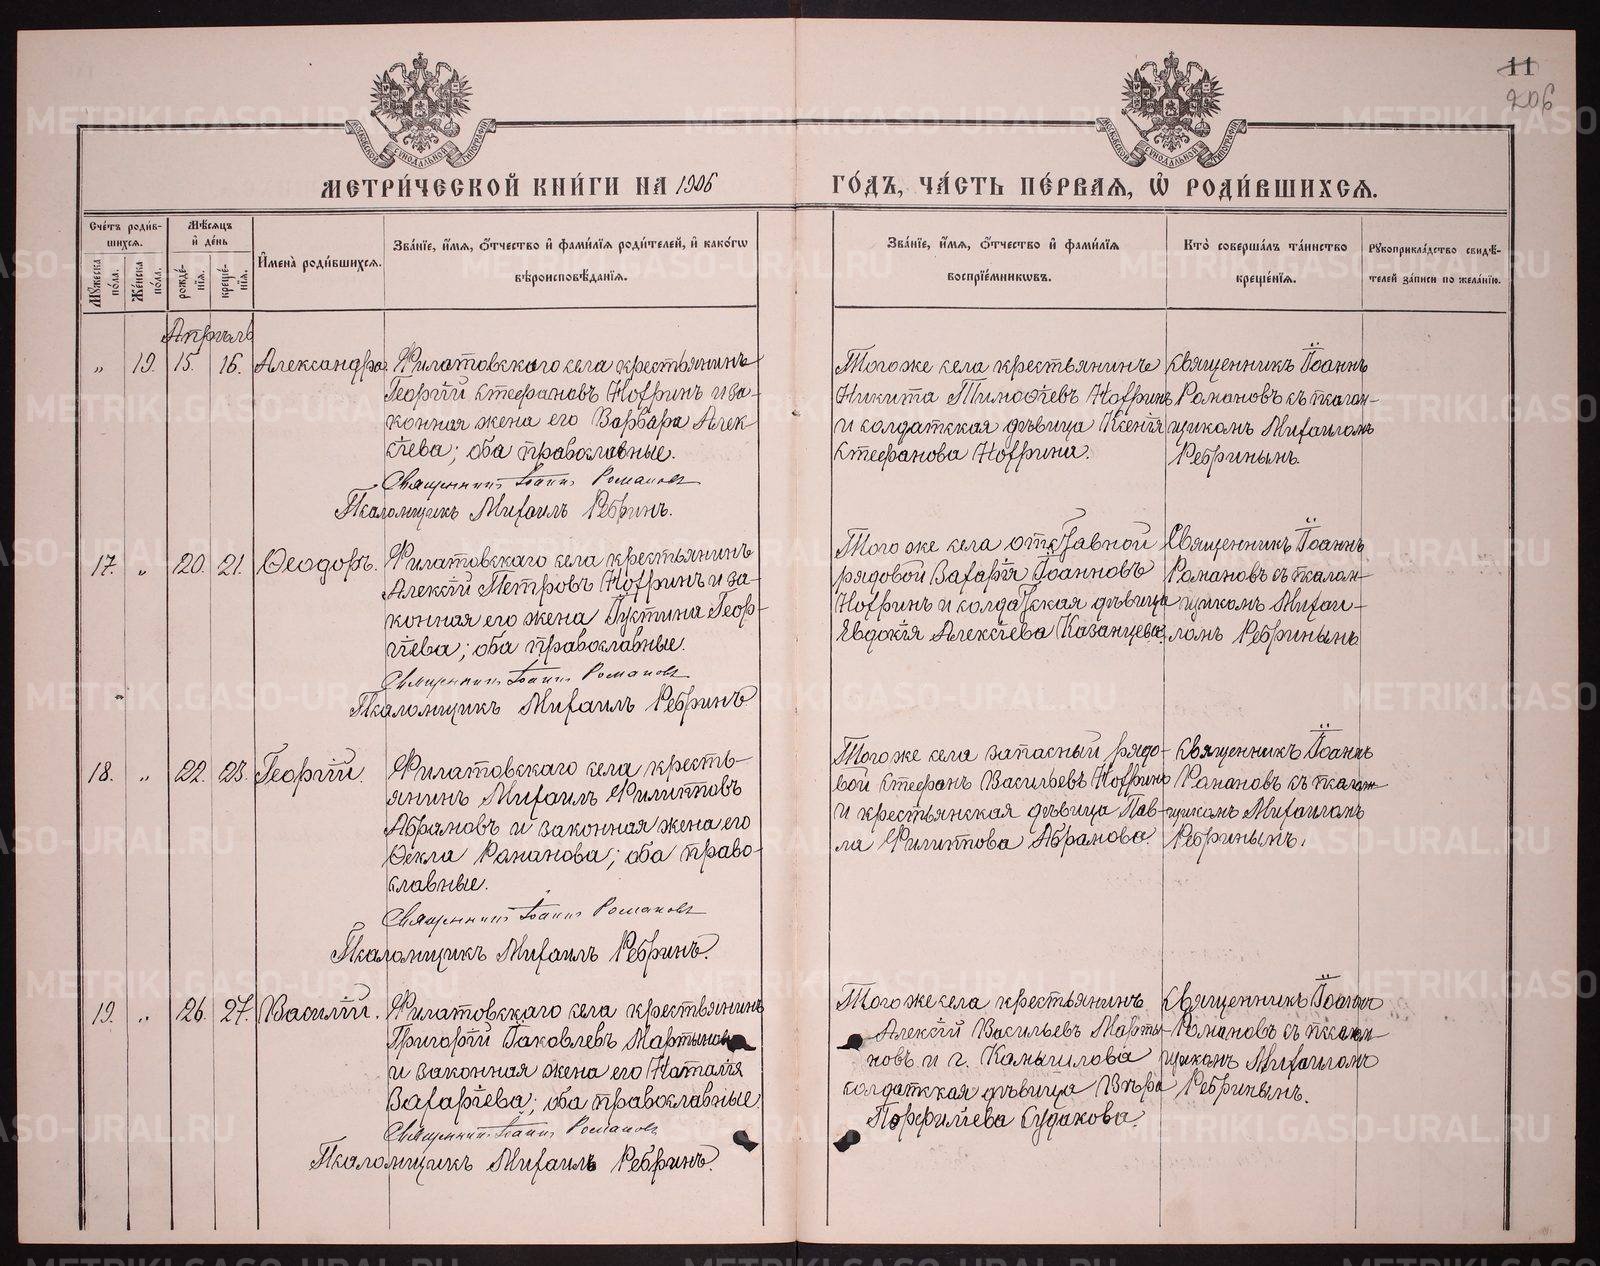 11
206
МОСКОВСКОЙ СѴНОДАЛЬНОЙ ТИПОГРАФІИ
МОСКОВСКОЙ СѴНОДАЛЬНОЙ ТИПОГРАФІИ
МЕТРИ́ЧЕСКОЙ КНИ́ГИ НА 1906
ГО́ДЪ, ЧА́СТЬ ПЕ́РВАѦ, Ѡ҆ РОДИ́ВШИХСѦ.
Сче́тъ роди́в-
шихсѧ.
Мѣ́сѧцъ
и҆ де́нь
Мꙋ́жеска по́ла.
Же́нска по́ла.
рожде́-
нїѧ.
креще́-
нїѧ.
И҆мена̀ роди́вшихсѧ.
Зва́нїе, и҆́мѧ, ѻ҆́тчество и҆ фами́лїѧ роди́телей, и҆ како́гѡ
вѣроисповѣ́данїѧ.
Зва́нїе, и҆́мѧ, ѻ҆́тчество и҆ фами́лїѧ
воспрїе́мникѡвъ.
Кто̀ соверша́лъ та́инство
креще́нїѧ.
Рꙋкоприкла́дство свидѣ́-
телей за́писи по жела́нїю.
Апрѣль
„ 19. 15. 16. Александра.
Филатовскаго села крестьянинъ
Георгій Стефановъ Нохринъ и за-
конная жена его Варвара Алек-
сіева; оба православные.
Священникъ Іоаннъ Романовъ
Псаломщикъ Михаилъ Ребринъ.
Того же села крестьянинъ
Никита Тимоѳіевъ Нохринъ
и солдатская дѣвица Ксенія
Стефанова Нохрина.
Священникъ Іоаннъ
Романовъ съ псалом-
щикомъ Михаиломъ
Ребринымъ.
17. „ 20. 21. Ѳеодоръ.
Филатовскаго села крестьянинъ
Алексій Петровъ Нохринъ и за-
конная его жена Іустина Геор-
гіева; оба православные.
Священникъ Іоаннъ Романовъ
Псаломщикъ Михаилъ Ребринъ
Того же села отставной
рядовой Захарія Іоанновъ
Нохринъ и солдатская дѣвица
Евдокія Алексіева Казанцева.
Священникъ Іоаннъ
Романовъ съ псалом-
щикомъ Михаи-
ломъ Ребринымъ
18. „ 22. 23. Георгій.
Филатовскаго села кресть-
янинъ Михаилъ Филипповъ
Абрамовъ и законная жена его
Ѳекла Романова; оба право-
славные.
Священникъ Іоаннъ Романовъ
Псаломщикъ Михаилъ Ребринъ.
Того же села запасный рядо-
вой Стефанъ Васильевъ Нохринъ
и крестьянская дѣвица Пав-
ла Филиппова Абрамова.
Священникъ Іоаннъ
Романовъ съ псалом-
щикомъ Михаиломъ
Ребринымъ.
19. „ 26. 27. Василій.
Филатовскаго села крестьянинъ
Григорій Іаковлевъ Мартыновъ
и законная жена его Наталія
Захаріева; оба православные.
Священникъ Іоаннъ Романовъ
Псаломщикъ Михаилъ Ребринъ.
Того же села крестьянинъ
Алексій Васильевъ Марты-
новъ и г. Камышлова
солдатская дѣвица Вѣра
Порфиліева Судакова.
Священникъ Іоаннъ
Романовъ съ псалом-
щикомъ Михаиломъ
Ребринымъ.
METRIKI.GASO-URAL.RU